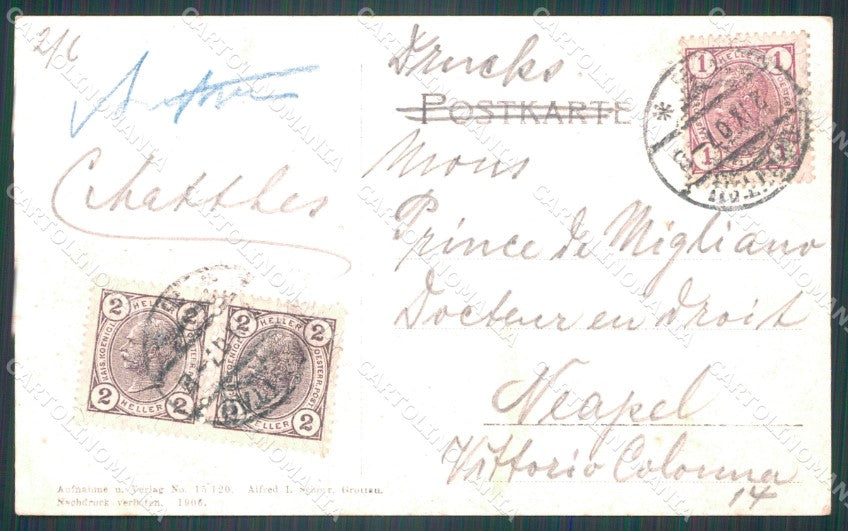 2/6
Drucks.
POSTKARTE
Matthes
Mons
Prince de Migliano
Docteur en droit
Neapel
Vittorio Colonna
14
1 HELLER 1
1 1
2 HELLER 2
KAIS. KOENIGL.
2 HELLER 2
2 HELLER 2
OESTERR. POST
2 HELLER 2
Aufnahme u. Verlag No. 15120. Alfred I. Grottau.
Nachdruck verboten. 1906.
CARTOLINOMANIA